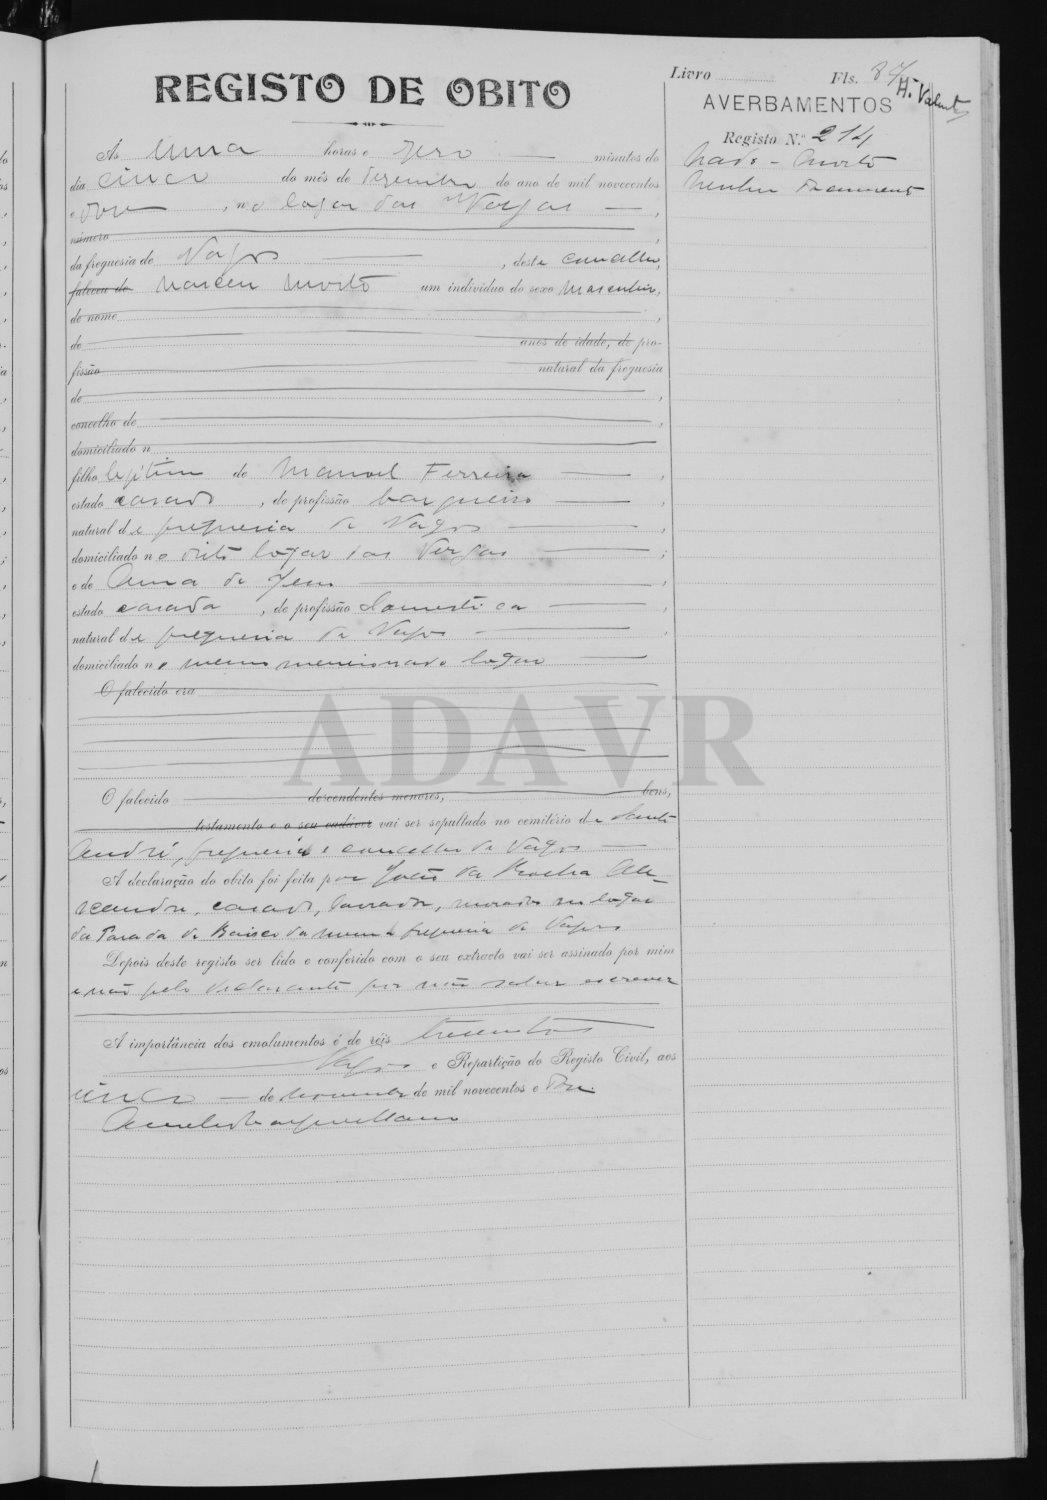 Livro Fls. 87
REGISTO DE OBITO
H. Valente
AVERBAMENTOS
Registo N.º 214
Nado - Morto
Nenhum Documento
Ás uma horas e zero minutos do
dia cinco do mês de Dezembro do ano de mil novecentos
e doze, no logar das Vergas,
número
da freguesia de Vagos, deste concelho,
faleceu de nasceu morto um indivíduo do sexo masculino,
de nome
de anos de idade, de pro-
fissão natural da freguesia
de
concelho de
domiciliado n
filho legítimo de Manoel Ferreira
estado casado, de profissão barqueiro
natural da freguesia de Vagos
domiciliado no dito logar das Vergas
e de Anna de Jesus
estado casada, de profissão Domestica
natural da freguesia de Vagos
domiciliado no mesmo mencionado logar
O falecido era
ADAVR
O falecido descendentes menores, bens,
testamento e o seu cadáver vai ser sepultado no cemitério de Santo
André, freguesia e concelho de Vagos
A declaração do obito foi feita por João da Rocha Ale-
xandre, casado, lavrador, morador no logar
da Parada de Baixo da mesma freguesia de Vagos
Depois deste registo ser lido e conferido com o seu extracto vai ser assinado por mim
e não pelo declarante por não saber escrever
A importância dos emolumentos é de réis trezentos
Vagos e Repartição do Registo Civil, aos
cinco de de mil novecentos e doze.